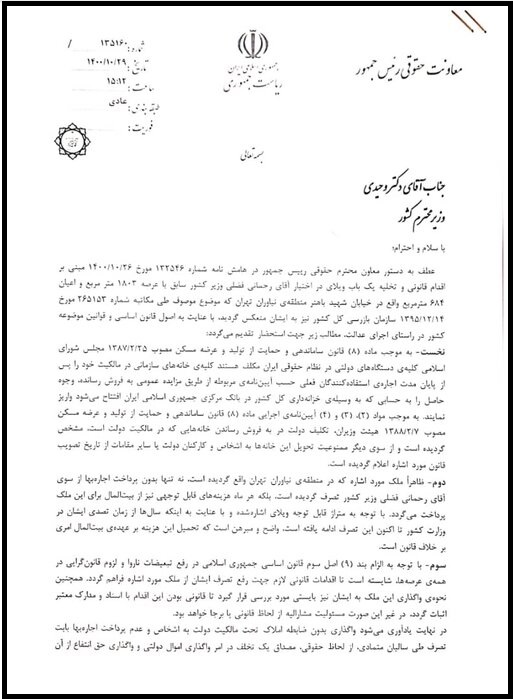 معاونت حقوقی رئیس جمهور
جمهوری اسلامی ایران
ریاست جمهوری
شماره: ۱۳۵۱۶۰ /
تاریخ: ۱۴۰۰/۱۰/۲۹
ساعت: ۱۵:۱۲
طبقه بندی: عادی
فوریت:
بسمه تعالی
جناب آقای دکتر وحیدی
وزیر محترم کشور
با سلام و احترام؛
عطف به دستور معاون محترم حقوقی رییس جمهور در هامش نامه شماره ۱۳۲۵۴۶ مورخ ۱۴۰۰/۱۰/۲۶ مبنی بر
اقدام قانونی و تخلیه یک باب ویلای در اختیار آقای رحمانی فضلی وزیر کشور سابق با عرصه ۱۸۰۳ متر مربع و اعیان
۶۸۴ مترمربع واقع در خیابان شهید باهنر منطقه‌ی نیاوران تهران که موضوع موصوف طی مکاتبه شماره ۲۶۵۱۵۳ مورخ
۱۳۹۵/۱۲/۱۴ سازمان بازرسی کل کشور نیز به ایشان منعکس گردید، با عنایت به اصول قانون اساسی و قوانین موضوعه
کشور در راستای اجرای عدالت، مطالب زیر جهت استحضار تقدیم می‌گردد:
نخست- به موجب ماده (۸) قانون ساماندهی و حمایت از تولید و عرضه مسکن مصوب ۱۳۸۷/۲/۲۵ مجلس شورای
اسلامی کلیه‌ی دستگاه‌های دولتی در نظام حقوقی ایران مکلف هستند کلیه‌ی خانه‌های سازمانی در مالکیت خود را پس
از پایان مدت اجاره‌ی استفاده‌کنندگان فعلی حسب آیین‌نامه‌ی مربوطه از طریق مزایده عمومی به فروش رسانده، وجوه
حاصل را به حسابی که به وسیله‌ی خزانه‌داری کل کشور در بانک مرکزی جمهوری اسلامی ایران افتتاح می‌شود واریز
نمایند. به موجب مواد (۲)، (۳) و (۴) آیین‌نامه‌ی اجرایی ماده (۸) قانون ساماندهی و حمایت از تولید و عرضه مسکن
مصوب ۱۳۸۸/۲/۷ هیئت وزیران، تکلیف دولت در به فروش رساندن خانه‌هایی که در مالکیت دولت است، مشخص
گردیده است و از سوی دیگر ممنوعیت تحویل این خانه‌ها به اشخاص و کارکنان دولت یا سایر مقامات از تاریخ تصویب
قانون مورد اشاره اعلام گردیده است.
دوم- ظاهراً ملک مورد اشاره که در منطقه‌ی نیاوران تهران واقع گردیده است، نه تنها بدون پرداخت اجاره‌بها از سوی
آقای رحمانی فضلی وزیر کشور تصرف گردیده است، بلکه هر ماه هزینه‌های قابل توجهی نیز از بیت‌المال برای این ملک
پرداخت می‌گردد. با توجه به متراژ قابل توجه ویلای اشاره‌شده و با عنایت به اینکه سال‌ها از زمان تصدی ایشان در
وزارت کشور تا اکنون این تصرف ادامه یافته است، واضح و مبرهن است که تحمیل این هزینه بر عهده‌ی بیت‌المال امری
بر خلاف قانون است.
سوم - با توجه به الزام بند (۹) اصل سوم قانون اساسی جمهوری اسلامی در رفع تبعیضات ناروا و لزوم قانون‌گرایی در
همه‌ی عرصه‌ها، شایسته است تا اقدامات قانونی لازم جهت رفع تصرف ایشان از ملک مورد اشاره فراهم گردد. همچنین
نحوه‌ی واگذاری این ملک به ایشان نیز بایستی مورد بررسی قرار گیرد تا قانونی بودن این اقدام با اسناد و مدارک معتبر
اثبات گردد. در غیر این صورت مسئولیت مشارالیه از لحاظ قانونی پا برجا خواهد بود.
در نهایت یادآوری می‌شود واگذاری بدون ضابطه املاک تحت مالکیت دولت به اشخاص و عدم پرداخت اجاره‌بها بابت
تصرف طی سالیان متمادی، از لحاظ حقوقی، مصداق یک تخلف در امر واگذاری اموال دولتی و واگذاری حق انتفاع از آن